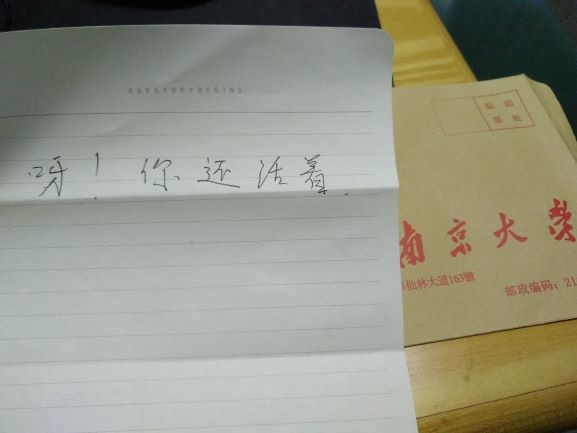 OURSTORYBEGINS
呀！你还活着.
贴 邮
票 处
南京大学
仙林大道163號
邮政编码：21